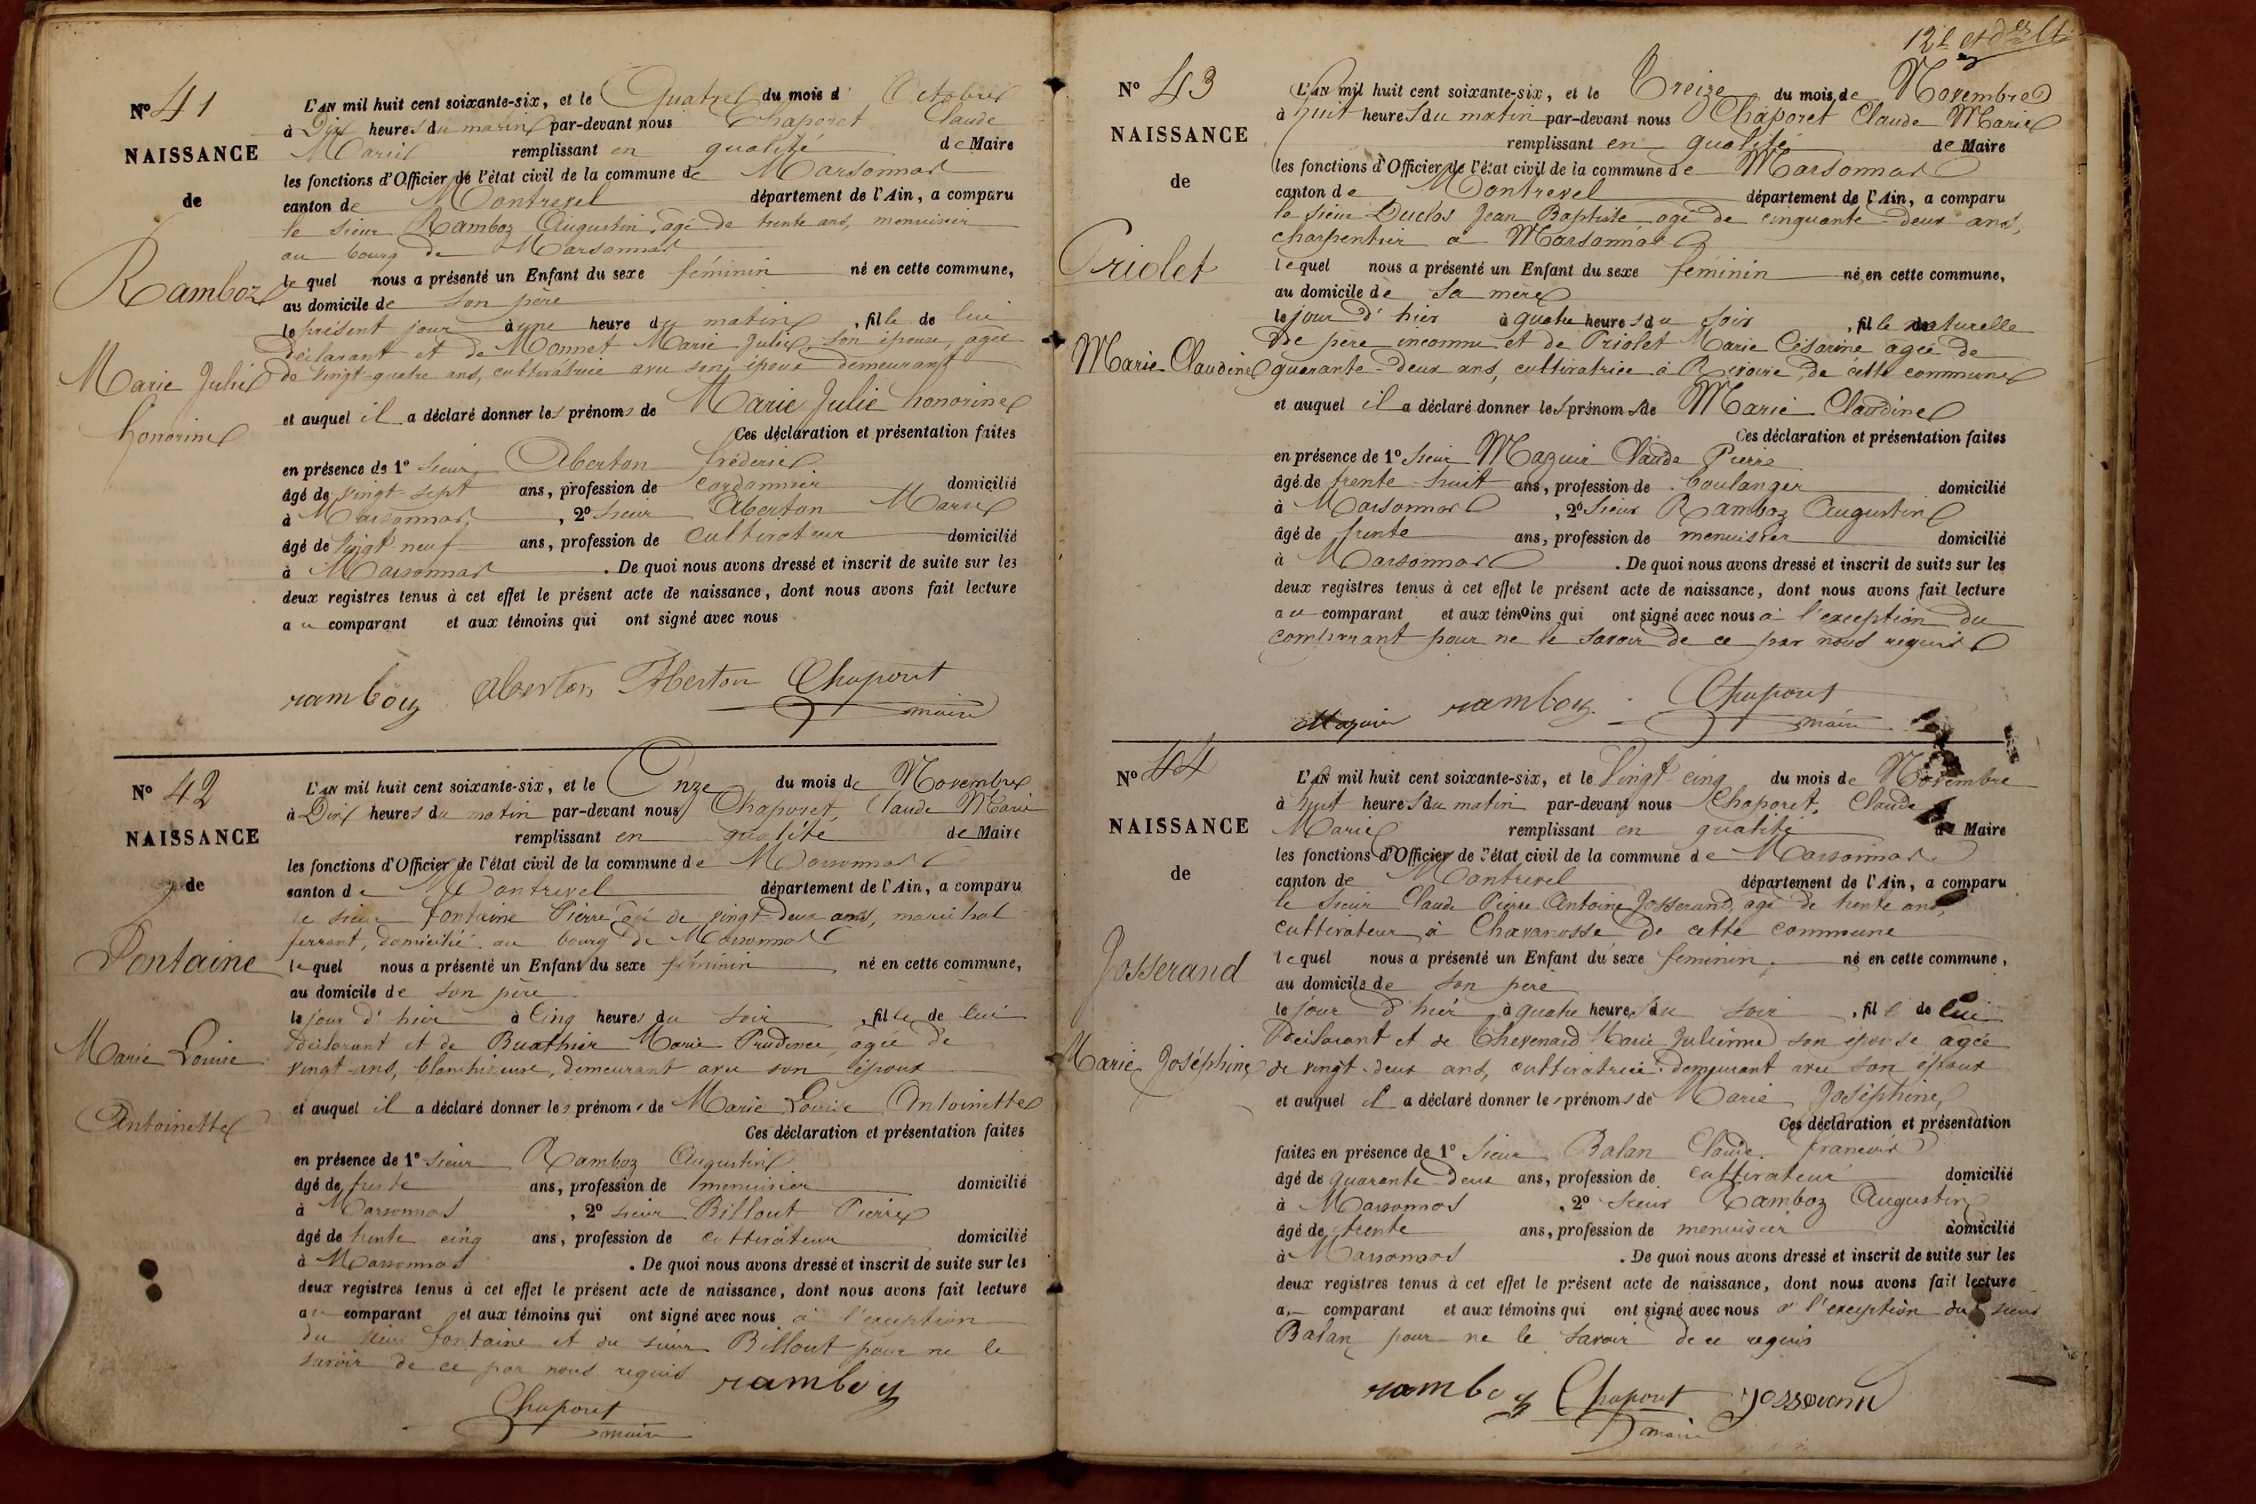 Nº 41
NAISSANCE
de
Ramboz
Marie Julie
honorine
L'AN mil huit cent soixante-six, et le Quatre du mois d'Octobre
à Dix heures du matin par-devant nous Chaporet Claude
Marie remplissant en qualité de Maire
les fonctions d'Officier de l'état civil de la commune de Marsonnas
canton de Montrevel département de l'Ain, a comparu
le sieur Ramboz Augustin, agé de trente ans, menuisier
au bourg de Marsonnas
lequel nous a présenté un Enfant du sexe féminin né en cette commune,
au domicile de son père
le présent jour à une heure du matin, fille de lui
déclarant et de Monnet Marie Julie, son épouse, agée
de vingt-quatre ans, cultivatrice avec son époux demeurant
et auquel il a déclaré donner les prénoms de Marie Julie honorine
Ces déclaration et présentation faites
en présence de 1º sieur Aberton frédéric
âgé de vingt-sept ans, profession de cordonnier domicilié
à Marsonnas, 2º sieur Aberton Marie
âgé de vingt-neuf ans, profession de cultivateur domicilié
à Marsonnas. De quoi nous avons dressé et inscrit de suite sur les
deux registres tenus à cet effet le présent acte de naissance, dont nous avons fait lecture
au comparant et aux témoins qui ont signé avec nous
ramboz Aberton Aberton Chaporet
maire
Nº 42
NAISSANCE
de
Fontaine
Marie Louise
Antoinette
L'AN mil huit cent soixante-six, et le Onze du mois de Novembre
à Dix heures du matin par-devant nous Chaporet, Claude Marie
remplissant en qualité de Maire
les fonctions d'Officier de l'état civil de la commune de Marsonnas
canton de Montrevel département de l'Ain, a comparu
le sieur fontaine Pierre agé de vingt-deux ans, maréchal
ferrant, domicilié au bourg de Marsonnas
lequel nous a présenté un Enfant du sexe féminin né en cette commune,
au domicile de son père
le jour d'hier à Cinq heures du soir, fille de lui
déclarant et de Buathier Marie Prudence, agée de
vingt ans, blanchisseuse, demeurant avec son époux
et auquel il a déclaré donner les prénoms de Marie Louise Antoinette
Ces déclaration et présentation faites
en présence de 1º sieur Ramboz Augustin
âgé de trente ans, profession de menuisier domicilié
à Marsonnas, 2º sieur Billout Pierre
âgé de trente cinq ans, profession de cultivateur domicilié
à Marsonnas. De quoi nous avons dressé et inscrit de suite sur les
deux registres tenus à cet effet le présent acte de naissance, dont nous avons fait lecture
au comparant et aux témoins qui ont signé avec nous à l'exception
du sieur fontaine et du sieur Billout pour ne le
savoir de ce par nous requis
ramboz
Chaporet
maire
Nº 43
NAISSANCE
de
Priolet
Marie Claudine
L'AN mil huit cent soixante-six, et le Treize du mois de Novembre
à huit heures du matin par-devant nous Chaporet Claude Marie
remplissant en qualité de Maire
les fonctions d'Officier de l'état civil de la commune de Marsonnas
canton de Montrevel département de l'Ain, a comparu
le sieur Duclos Jean Baptiste agé de cinquante-deux ans,
charpentier à Marsonnas
lequel nous a présenté un Enfant du sexe féminin né en cette commune,
au domicile de sa mère
le jour d'hier à quatre heures du soir, fille naturelle
De père inconnu et de Priolet Marie Césarine agée de
quarante-deux ans, cultivatrice à Revoire, de cette commune
et auquel il a déclaré donner les prénoms de Marie Claudine
Ces déclaration et présentation faites
en présence de 1º sieur Mazuir Claude Pierre
âgé de trente-huit ans, profession de boulanger domicilié
à Marsonnas, 2º sieur Ramboz Augustin
âgé de trente ans, profession de menuisier domicilié
à Marsonnas. De quoi nous avons dressé et inscrit de suite sur les
deux registres tenus à cet effet le présent acte de naissance, dont nous avons fait lecture
au comparant et aux témoins qui ont signé avec nous à l'exception du
comparant pour ne le savoir de ce par nous requis
Mazuir ramboz Chaporet
maire
Nº 44
NAISSANCE
de
Josserand
Marie Joséphine
L'AN mil huit cent soixante-six, et le Vingt-cinq du mois de Novembre
à huit heures du matin par-devant nous Chaporet, Claude
Marie remplissant en qualité de Maire
les fonctions d'Officier de l'état civil de la commune de Marsonnas
canton de Montrevel département de l'Ain, a comparu
le sieur Claude Pierre Antoine Josserand, agé de trente ans,
cultivateur à Chavanosse de cette commune
lequel nous a présenté un Enfant du sexe féminin, né en cette commune,
au domicile de son père
le jour d'hier à quatre heures du soir, fille de lui
déclarant et de Chevenard Marie Julienne son épouse agée
de vingt-deux ans, cultivatrice demeurant avec son époux
et auquel il a déclaré donner les prénoms de Marie Joséphine
Ces déclaration et présentation
faites en présence de 1º sieur Balan Claude francois
âgé de quarante-deux ans, profession de cultivateur domicilié
à Marsonnas, 2º sieur Ramboz Augustin
âgé de trente ans, profession de menuisier domicilié
à Marsonnas. De quoi nous avons dressé et inscrit de suite sur les
deux registres tenus à cet effet le présent acte de naissance, dont nous avons fait lecture
au comparant et aux témoins qui ont signé avec nous à l'exception du sieur
Balan pour ne le savoir de ce requis
ramboz Chaporet Josserand
maire